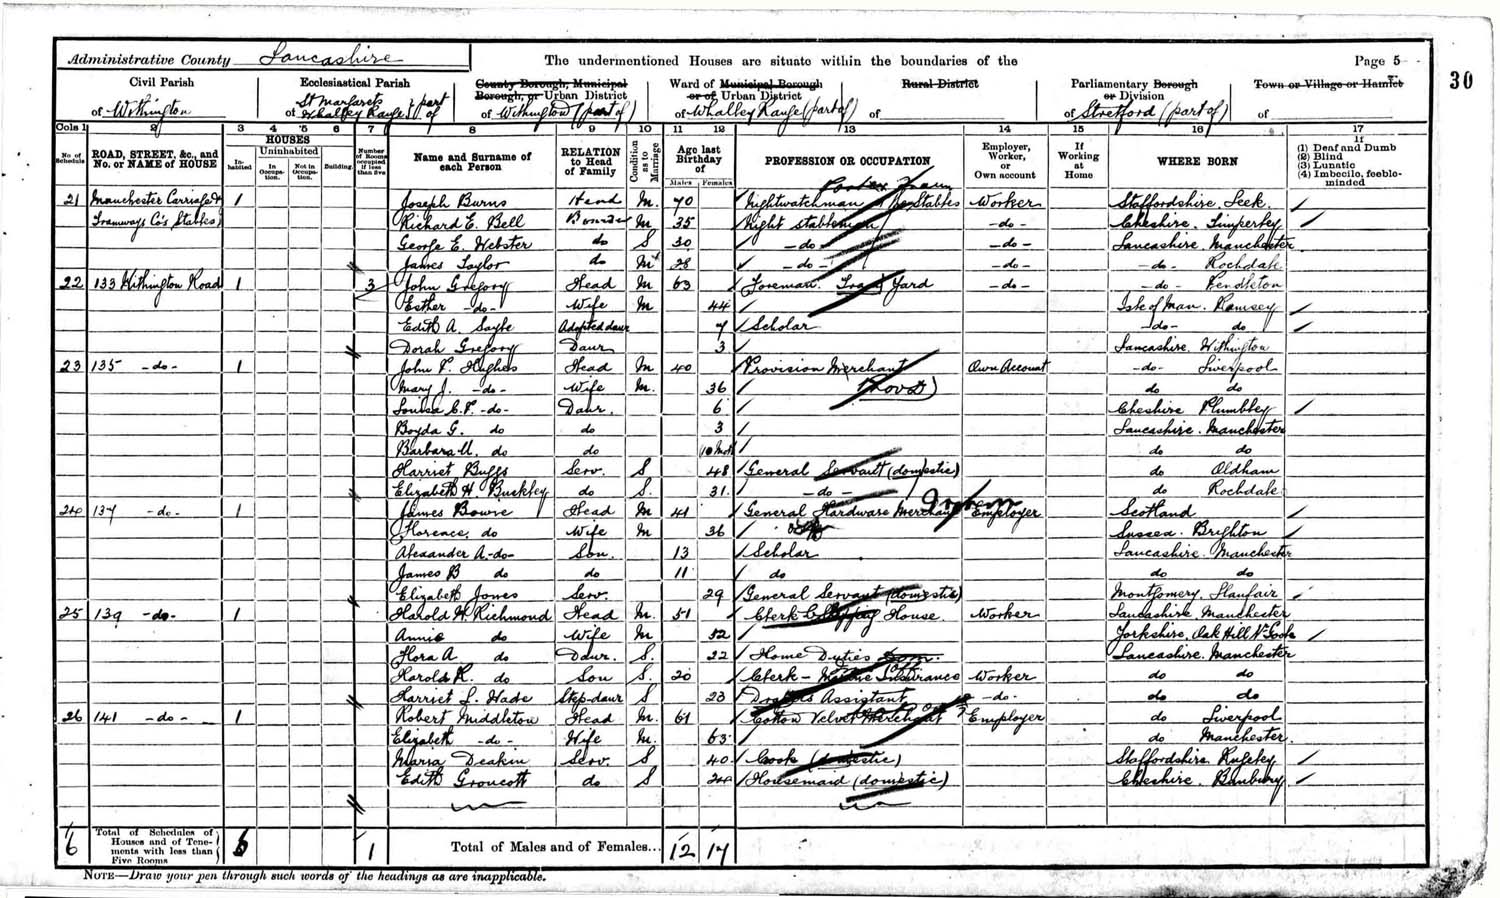 Administrative County Lancashire
The undermentioned Houses are situate within the boundaries of the
Page 5
30
Civil Parish of Withington
Ecclesiastical Parish of St Margaret's Whalley Range part of
County Borough, Municipal Borough, or Urban District of Withington (part of)
Ward of Municipal Borough or of Urban District of Whalley Range (part of)
Rural District of
Parliamentary Borough or Division of Stretford (part of)
Town or Village or Hamlet of
Cols 1 2 3 4 5 6 7 8 9 10 11 12 13 14 15 16 17
No of Schedule
ROAD, STREET, &c., and No. or NAME of HOUSE
HOUSES
Inhabited
Uninhabited
In Occupation.
Not in Occupation.
Building.
Number of Rooms occupied if less than five
Name and Surname of each Person
RELATION to Head of Family
Condition as to Marriage
Age last Birthday of
Males Females
PROFESSION OR OCCUPATION
Employer, Worker, or Own account
If Working at Home
WHERE BORN
If
(1) Deaf and Dumb
(2) Blind
(3) Lunatic
(4) Imbecile, feeble-minded
21 Manchester Carriage & 1 Joseph Burns Head M. 70 Nightwatchman Stables Worker Staffordshire, Leek
Tramways Co's Stables Richard E. Bell Boarder M 35 Night stableman -do- Cheshire. Timperley
George E. Webster do S 30 -do- -do- Lancashire. Manchester
James Taylor do M 28 -do- -do- -do- Rochdale
22 133 Withington Road 1 3 John Gregory Head M 63 Foreman. Yard -do- -do- Pendleton
Esther -do- Wife M 44 Isle of Man. Ramsey
Edith A. Adopted daur 7 Scholar -do- do
Dorah Gregory Daur 3 Lancashire. Withington
23 135 -do- 1 John T. Hughes Head M 40 Provision Merchant Own Account -do- Liverpool
Mary J. -do- Wife M. 36 do do
Louisa -do- Daur. 6 Cheshire Plumbley
G. do do 3 Lancashire. Manchester
Barbara do do 10 Mos do do
Harriet Buggs Serv. S 48 General Servant (domestic) do Oldham
Elizabeth H. Buckley do S. 31. -do- do Rochdale
24 137 -do- 1 James Head M 41 General Hardware Merchant Employer Scotland
Florence. do Wife M 36 Sussex. Brighton
Alexander A -do- Son. 13 Scholar Lancashire. Manchester
James B do do 11 do do do
Elizabeth Jones Serv. 29 General Servant (domestic) Montgomery. Llanfair
25 139 -do- 1 Harold H. Richmond Head M. 51 Clerk Shipping House Worker Lancashire. Manchester
Annie do Wife M 52 Yorkshire. Oak Hill
Flora A do Daur. S. 22 Home Duties Lancashire. Manchester
Harold R. do Son S. 20 Clerk - Marine Insurance Worker do do
Harriet L. Wade Step-daur S 23 Drapers Assistant -do- do do
26 141 -do- 1 Robert Middleton Head M. 61 Cotton Velvet Merchant Employer do Liverpool
Elizabeth -do- Wife M. 63 do Manchester.
Maria Deakin Serv. S 40 Cook (domestic) Staffordshire. Rugeley
Edith Groucott do S 24 Housemaid (domestic) Cheshire. Bunbury
6 Total of Schedules of Houses and of Tenements with less than Five Rooms 6 1 Total of Males and of Females... 12 17
NOTE—Draw your pen through such words of the headings as are inapplicable.